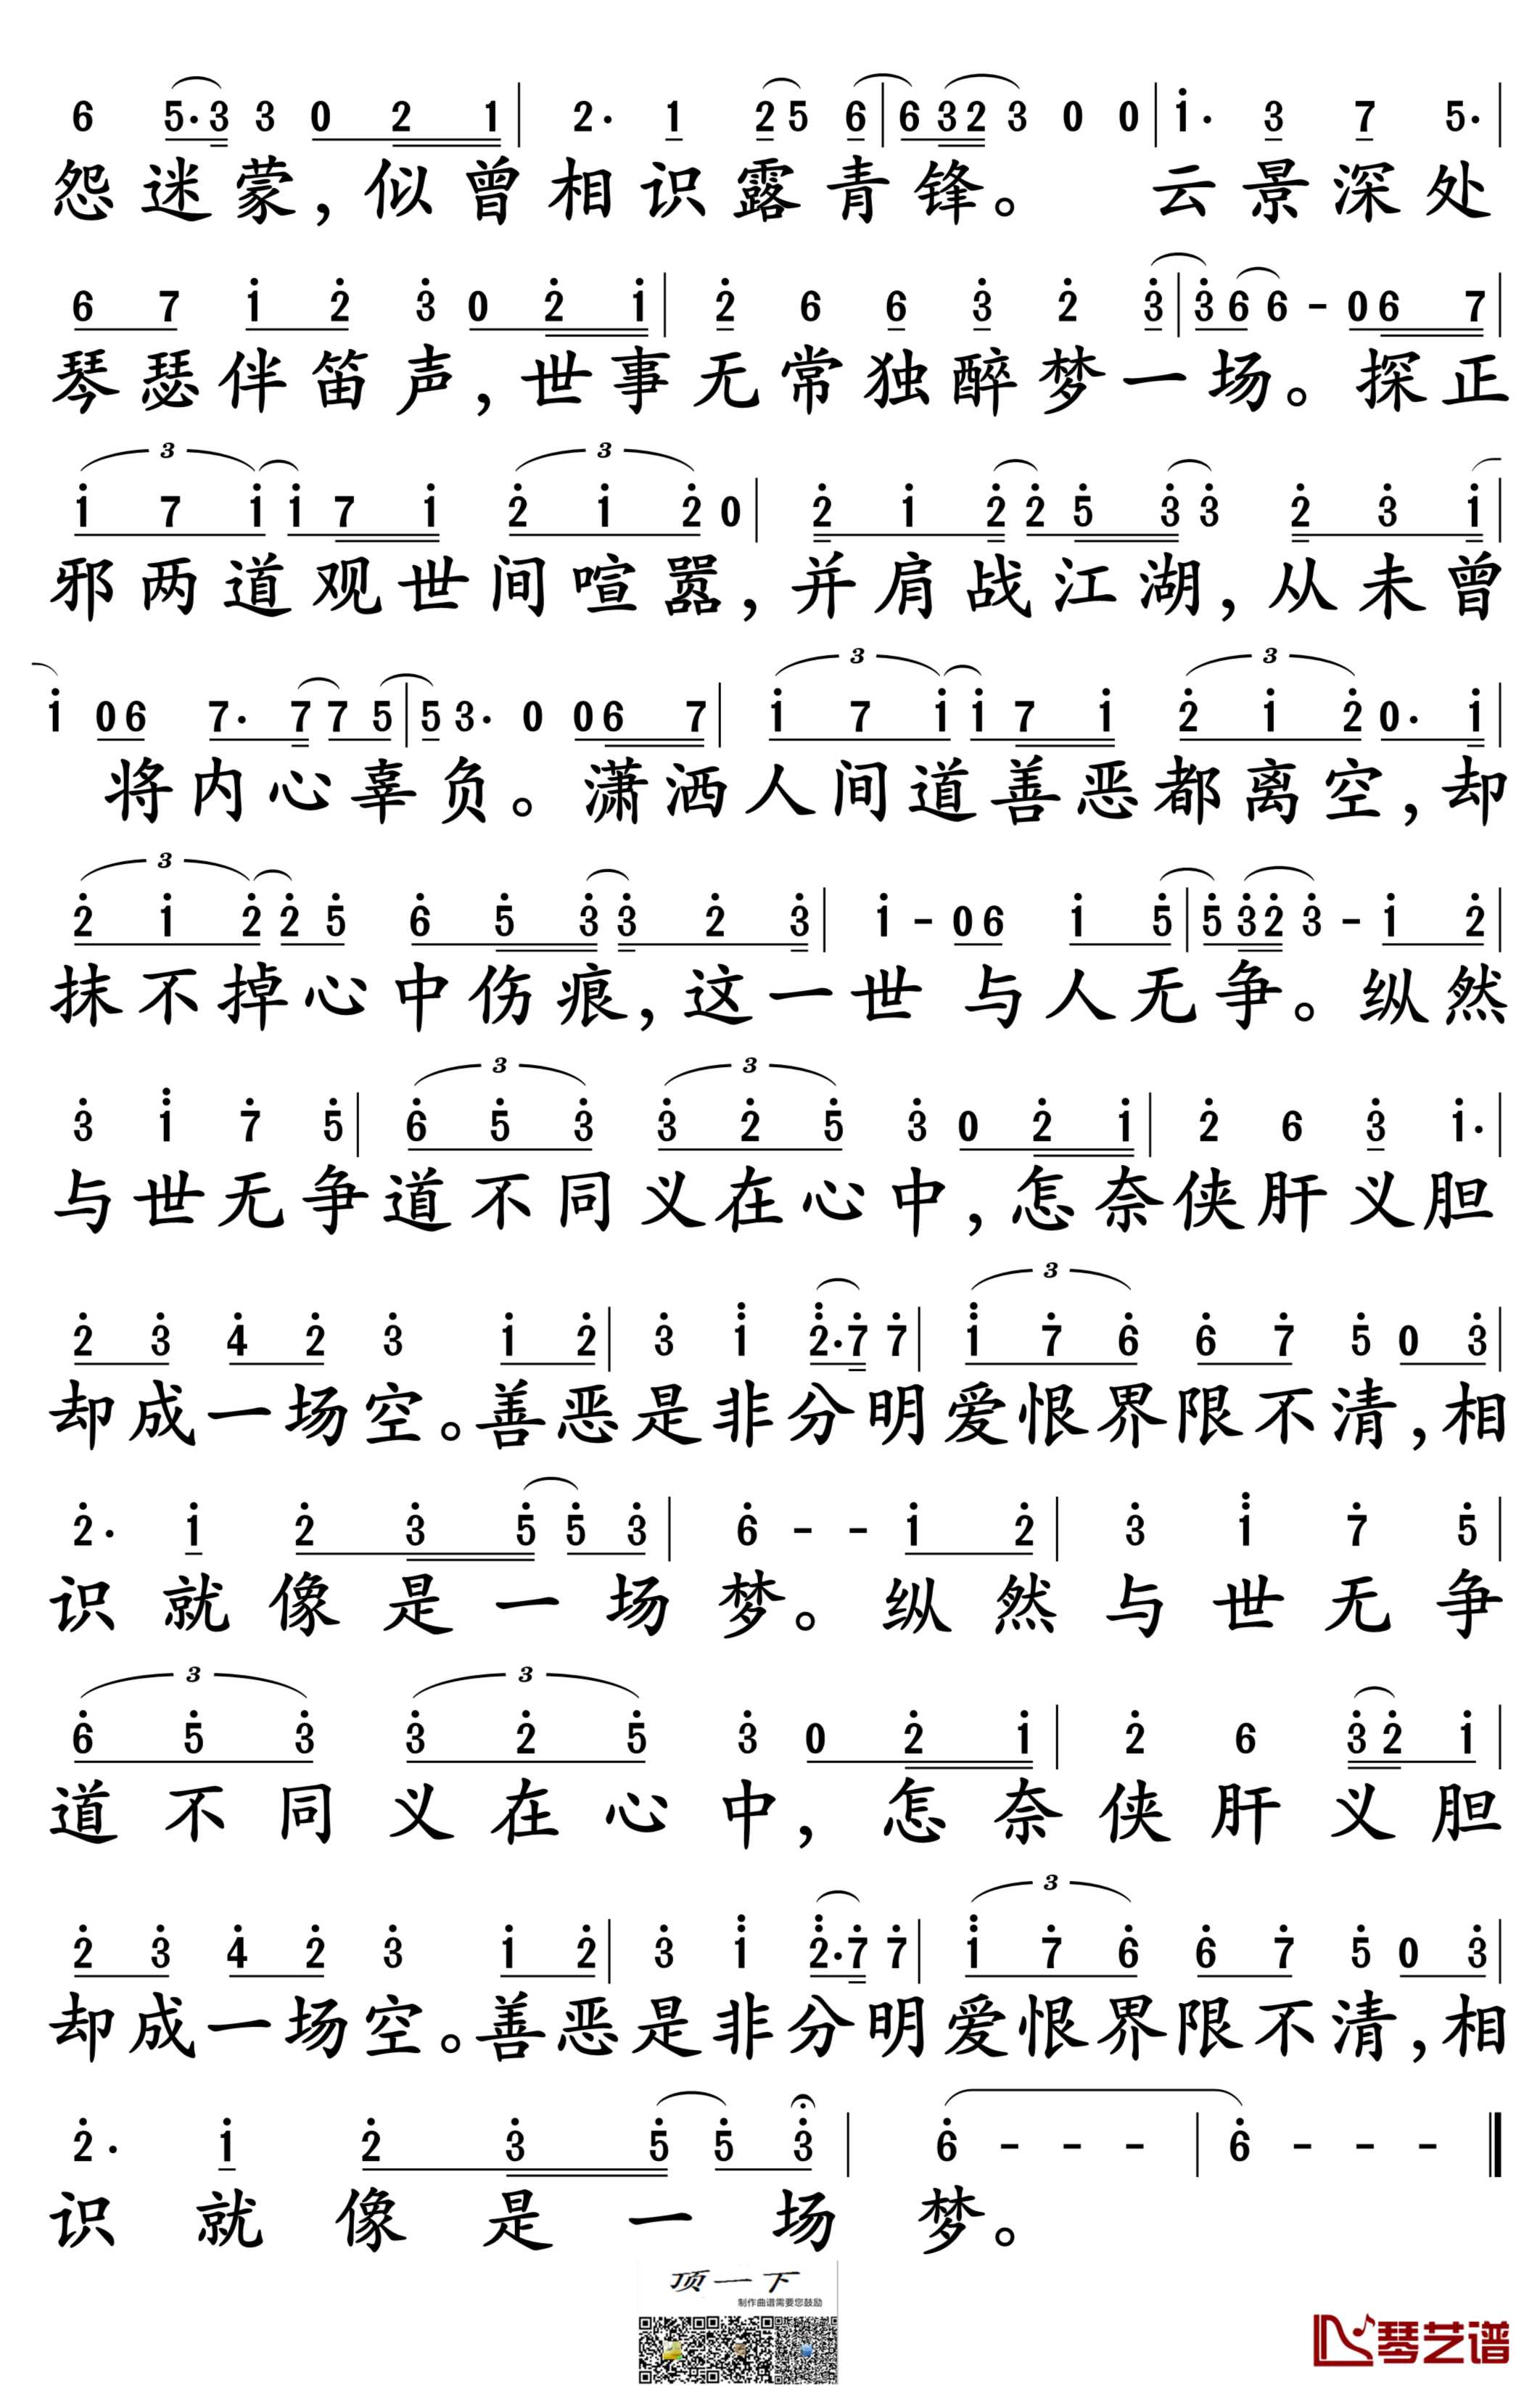 6 5·3 3 0 2 1 | 2· 1 2 5 6 | 6 3 2 3 0 0 | 1· 3 7 5· |
怨迷蒙，似曾相识露青锋。 云景深处
6 7 1 2 3 0 2 1 | 2 6 6 3 2 3 | 3 6 6 - 0 6 7 |
琴瑟伴笛声，世事无常独醉梦一场。探正
3 3
1 7 1 1 7 1 2 1 2 0 | 2 1 2 2 5 3 3 2 3 1 |
邪两道观世间喧嚣，并肩战江湖，从未曾
3 3
1 0 6 7· 7 7 5 | 5 3· 0 0 6 7 | 1 7 1 1 7 1 2 1 2 0· 1 |
将内心辜负。潇洒人间道善恶都离空，却
3
2 1 2 2 5 6 5 3 3 2 3 | 1 - 0 6 1 5 | 5 3 2 3 - 1 2 |
抹不掉心中伤痕，这一世 与人无争。纵然
3 3
3 1 7 5 | 6 5 3 3 2 5 3 0 2 1 | 2 6 3 1· |
与世无争道不同义在心中，怎奈侠肝义胆
3
2 3 4 2 3 1 2 | 3 1 2·7 7 | 1 7 6 6 7 5 0 3 |
却成一场空。善恶是非分明爱恨界限不清，相
2· 1 2 3 5 5 3 | 6 - - 1 2 | 3 1 7 5 |
识就像是一场梦。纵然与世无争
3 3
6 5 3 3 2 5 3 0 2 1 | 2 6 3 2 1 |
道不同义在心中，怎奈侠肝义胆
3
2 3 4 2 3 1 2 | 3 1 2·7 7 | 1 7 6 6 7 5 0 3 |
却成一场空。善恶是非分明爱恨界限不清，相
2· 1 2 3 5 5 3 | 6 - - - | 6 - - - ‖
识就像是一场梦。
顶一下
制作曲谱需要您鼓励
琴艺谱